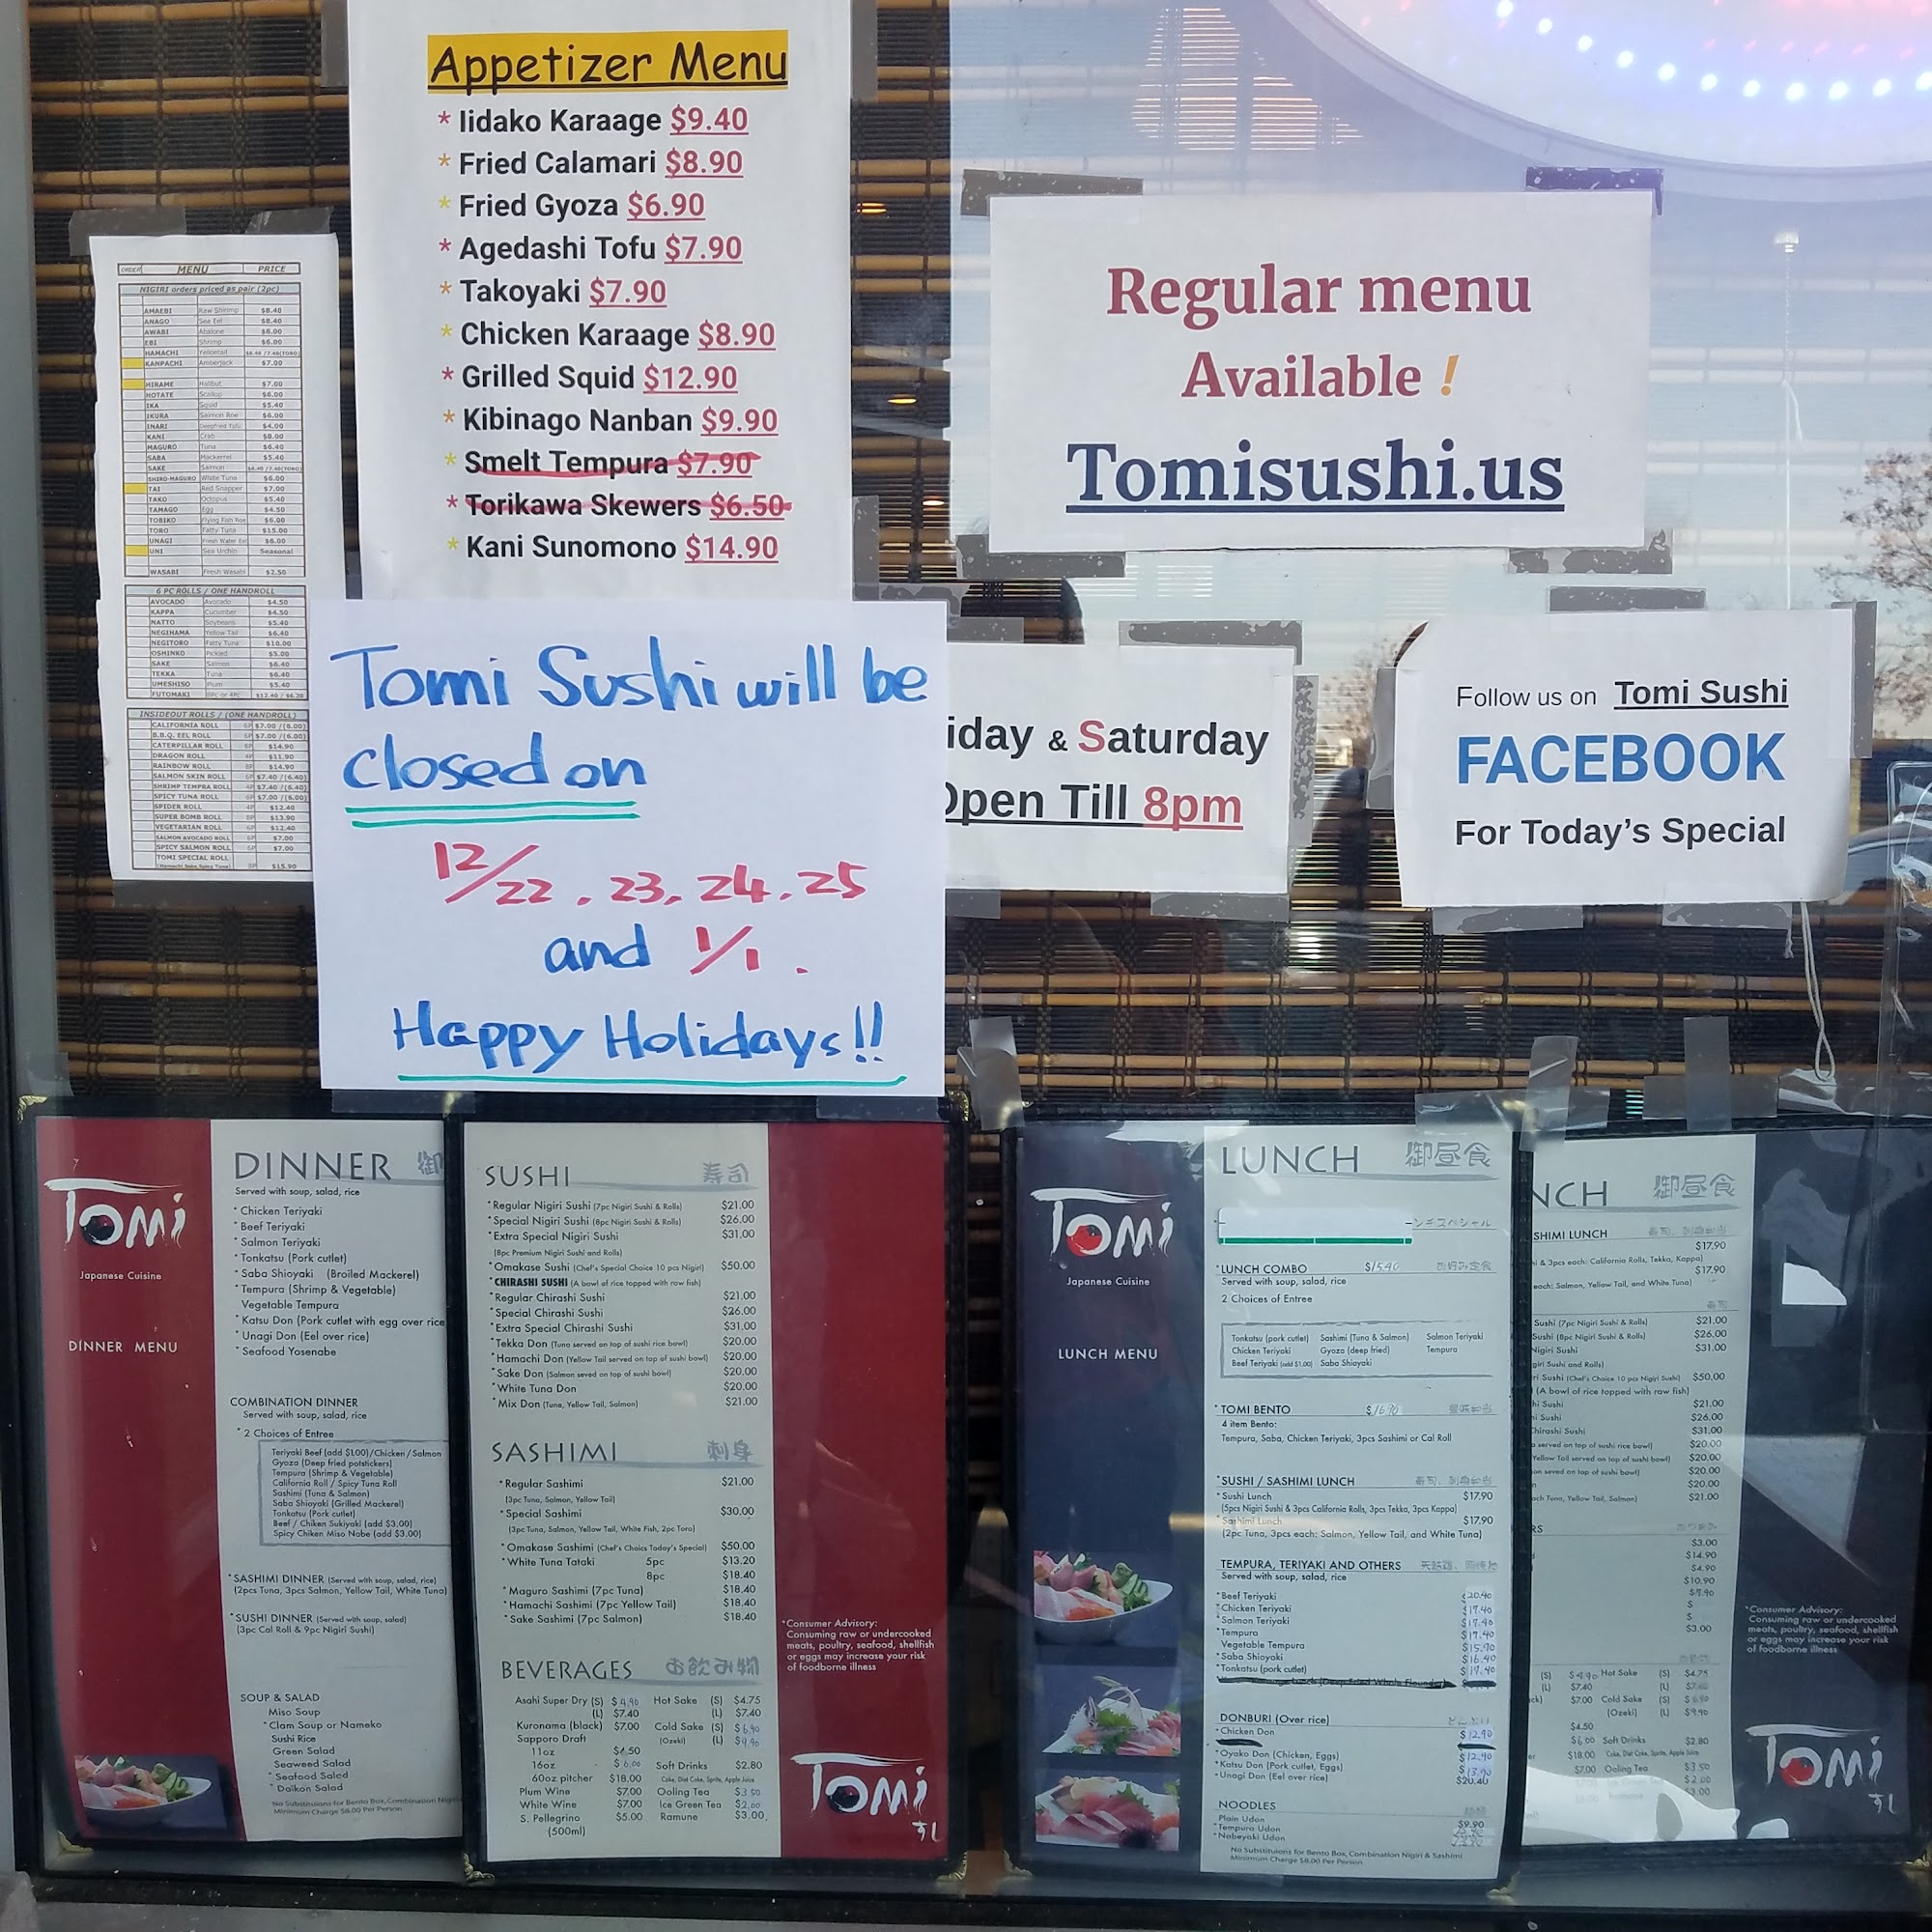 Appetizer Menu
* Iidako Karaage $9.40
* Fried Calamari $8.90
* Fried Gyoza $6.90
* Agedashi Tofu $7.90
* Takoyaki $7.90
* Chicken Karaage $8.90
* Grilled Squid $12.90
* Kibinago Nanban $9.90
* Smelt Tempura $7.90
* Torikawa Skewers $6.50
* Kani Sunomono $14.90
Regular menu
Available !
Tomisushi.us
ORDER MENU PRICE
NIGIRI orders priced as pair (2pc)
AMAEBI Raw Shrimp $8.40
ANAGO Sea Eel $8.40
AWABI Abalone $8.00
EBI Shrimp $6.00
HAMACHI Yellowtail
KANPACHI Amberjack $7.00
HIRAME Halibut $7.00
HOTATE Scallop $6.00
IKA Squid $5.40
IKURA Salmon Roe $6.00
INARI Deepfried Tofu $4.00
KANI Crab $8.00
MAGURO Tuna $6.40
SABA Mackerrel $5.40
SAKE Salmon
SHIRO-MAGURO White Tuna $6.00
TAI Red Snapper $7.00
TAKO Octopus $5.40
TAMAGO Egg $4.50
TOBIKO Flying Fish Roe $6.00
TORO Fatty Tuna $15.00
UNAGI Fresh Water Eel $6.00
UNI Sea Urchin Seasonal
WASABI Fresh Wasabi $2.50
6 PC ROLLS / ONE HANDROLL
AVOCADO Avocado $4.50
KAPPA Cucumber $4.50
NATTO Soybeans $5.40
NEGIHAMA Yellow Tail $6.40
NEGITORO Fatty Tuna $10.00
OSHINKO Pickled $5.00
SAKE Salmon $6.40
TEKKA Tuna $6.40
UMESHISO Plum $5.40
FUTOMAKI
INSIDEOUT ROLLS / (ONE HANDROLL)
CALIFORNIA ROLL $7.00 /(6.00)
B.B.Q. EEL ROLL $7.00 /(6.00)
CATERPILLAR ROLL $14.90
DRAGON ROLL $11.90
RAINBOW ROLL $14.90
SALMON SKIN ROLL $7.40 /(6.40)
SHRIMP TEMPRA ROLL $7.40 /(6.40)
SPICY TUNA ROLL $7.00 /(6.00)
SPIDER ROLL $12.40
SUPER BOMB ROLL $13.90
VEGETARIAN ROLL $12.40
SALMON AVOCADO ROLL $7.00
SPICY SALMON ROLL $7.00
TOMI SPECIAL ROLL
$15.90
Tomi Sushi will be
closed on
12/22 . 23, 24. 25
and 1/1 .
Happy Holidays!!
iday & Saturday
Open Till 8pm
Follow us on Tomi Sushi
FACEBOOK
For Today's Special
TOMI
Japanese Cuisine
DINNER MENU
DINNER 御
Served with soup, salad, rice
* Chicken Teriyaki
* Beef Teriyaki
* Salmon Teriyaki
* Tonkatsu (Pork cutlet)
* Saba Shioyaki (Broiled Mackerel)
* Tempura (Shrimp & Vegetable)
Vegetable Tempura
* Katsu Don (Pork cutlet with egg over rice
* Unagi Don (Eel over rice)
* Seafood Yosenabe
COMBINATION DINNER
Served with soup, salad, rice
* 2 Choices of Entree
Teriyaki Beef (add $1.00)/Chicken/Salmon
Gyoza (Deep fried potstickers)
Tempura (Shrimp & Vegetable)
California Roll / Spicy Tuna Roll
Sashimi (Tuna & Salmon)
Saba Shioyaki (Grilled Mackerel)
Tonkatsu (Pork cutlet)
Beef / Chiken Sukiyaki (add $3.00)
Spicy Chiken Miso Nabe (add $3.00)
*SASHIMI DINNER (Served with soup, salad, rice)
(2pcs Tuna, 3pcs Salmon, Yellow Tail, White Tuna)
*SUSHI DINNER (Served with soup, salad)
(3pc Cal Roll & 9pc Nigiri Sushi)
SOUP & SALAD
Miso Soup
*Clam Soup or Nameko
Sushi Rice
Green Salad
Seaweed Salad
* Seafood Salad
* Daikon Salad
No Substitutions for Bento Box, Combination
Minimum Charge $8.00 Per Person
SUSHI 寿司
*Regular Nigiri Sushi (7pc Nigiri Sushi & Rolls) $21.00
*Special Nigiri Sushi (8pc Nigiri Sushi & Rolls) $26.00
*Extra Special Nigiri Sushi $31.00
(8pc Premium Nigiri Sushi and Rolls)
*Omakase Sushi (Chef's Special Choice 10 pcs Nigiri) $50.00
*CHIRASHI SUSHI (A bowl of rice topped with raw fish)
*Regular Chirashi Sushi $21.00
*Special Chirashi Sushi $26.00
*Extra Special Chirashi Sushi $31.00
*Tekka Don (Tuna served on top of sushi rice bowl) $20.00
*Hamachi Don (Yellow Tail served on top of sushi bowl) $20.00
*Sake Don (Salmon seved on top of sushi bowl) $20.00
*White Tuna Don $20.00
*Mix Don (Tuna, Yellow Tail, Salmon) $21.00
SASHIMI 刺身
*Regular Sashimi $21.00
(3pc Tuna, Salmon, Yellow Tail)
*Special Sashimi $30.00
(3pc Tuna, Salmon, Yellow Tail, White Fish, 2pc Toro)
*Omakase Sashimi (Chef's Choics Today's Special) $50.00
*White Tuna Tataki 5pc $13.20
8pc $18.40
*Maguro Sashimi (7pc Tuna) $18.40
*Hamachi Sashimi (7pc Yellow Tail) $18.40
*Sake Sashimi (7pc Salmon) $18.40
BEVERAGES お飲み物
Asahi Super Dry (S) $4.90 Hot Sake (S) $4.75
(L) $7.40 (L) $7.40
Kuronama (black) $7.00 Cold Sake (S) $6.90
Sapporo Draft (Ozeki) (L) $9.90
11oz $4.50
16oz $6.00 Soft Drinks $2.80
60oz pitcher $18.00 Coke, Diet Coke, Sprite, Apple Juice
Plum Wine $7.00 Ooling Tea $3.50
White Wine $7.00 Ice Green Tea $2.00
S. Pellegrino $5.00 Ramune $3.00
(500ml)
*Consumer Advisory:
Consuming raw or undercooked
meats, poultry, seafood, shellfish
or eggs may increase your risk
of foodborne illness
TOMI
すし
TOMI
Japanese Cuisine
LUNCH MENU
LUNCH 御昼食
ンチスペシャル
*LUNCH COMBO $15.40 お好み定食
Served with soup, salad, rice
2 Choices of Entree
Tonkatsu (pork cutlet) Sashimi (Tuna & Salmon) Salmon Teriyaki
Chicken Teriyaki Gyoza (deep fried) Tempura
Beef Teriyaki (add $1.00) Saba Shioyaki
*TOMI BENTO $16.90
4 item Bento:
Tempura, Saba, Chicken Teriyaki, 3pcs Sashimi or Cal Roll
*SUSHI / SASHIMI LUNCH
*Sushi Lunch $17.90
(5pcs Nigiri Sushi & 3pcs California Rolls, 3pcs Tekka, 3pcs Kappa)
*Sashimi Lunch $17.90
(2pc Tuna, 3pcs each: Salmon, Yellow Tail, and White Tuna)
TEMPURA, TERIYAKI AND OTHERS
Served with soup, salad, rice
*Beef Teriyaki $20.40
*Chicken Teriyaki $17.40
*Salmon Teriyaki $17.40
*Tempura $17.40
Vegetable Tempura $15.90
*Saba Shioyaki $16.40
*Tonkatsu (pork cutlet) $17.40
DONBURI (Over rice) どんぶり
*Chicken Don $12.90
*Oyako Don (Chicken, Eggs) $12.90
*Katsu Don (Pork cutlet, Eggs) $13.90
*Unagi Don (Eel over rice) $20.40
NOODLES
Plain Udon $9.90
*Tempura Udon
*Nabeyaki Udon
No Substitutions for Bento Box, Combination Nigiri & Sashimi
Minimum Charge $8.00 Per Person
NCH 御昼食
SHIMI LUNCH
$17.90
& 3pcs each: California Rolls, Tekka, Kappa)
$17.90
each: Salmon, Yellow Tail, and White Tuna)
Sushi (7pc Nigiri Sushi & Rolls) $21.00
Sushi (8pc Nigiri Sushi & Rolls) $26.00
Nigiri Sushi $31.00
giri Sushi and Rolls)
ri Sushi (Chef's Choice 10 pcs Nigiri Sushi) $50.00
(A bowl of rice topped with raw fish)
hi Sushi $21.00
i Sushi $26.00
Chirashi Sushi $31.00
served on top of sushi rice bowl) $20.00
Yellow Tail served on top of sushi bowl) $20.00
on seved on top of sushi bowl) $20.00
$20.00
Tuna, Yellow Tail, Salmon) $21.00
RS
$3.00
$14.90
$4.90
$10.90
$9.90
$
$
$3.00
(S) $4.90 Hot Sake (S) $4.75
(L) $7.40 (L)
ck) $7.00 Cold Sake (S) $6.90
(Ozeki) (L) $9.90
$4.50
$6.00 Soft Drinks $2.80
$18.00 Coke, Diet Coke, Sprite, Apple Juice
$7.00 Ooling Tea $3.50
$2.00
$3.00
*Consumer Advisory:
Consuming raw or undercooked
meats, poultry, seafood, shellfish
or eggs may increase your risk
of foodborne illness
TOMI
すし